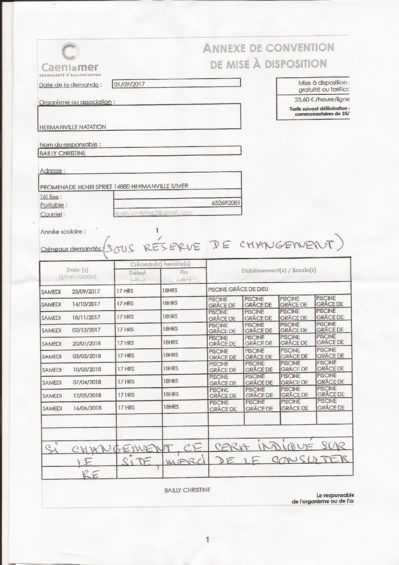 Caenlamer
COMMUNAUTÉ D'AGGLOMÉRATION
ANNEXE DE CONVENTION
DE MISE À DISPOSITION
Date de la demande : 01/09/2017
Mise à disposition :
gratuité ou tarifica
23,60 € /heure/ligne
Tarifs suivant délibération
communautaires du 25/
Organisme ou association :
HERMANVILLE NATATION
Nom du responsable :
BAILLY CHRISTINE
Adresse :
PROMENADE HENRI SPRIET 14880 HERMANVILLE S/MER
Tél fixe :
Portable : 652692081
Courriel :
Année scolaire :
Créneaux demandés : (SOUS RÉSERVE DE CHANGEMENT)
Date (s) Créneau(x) horaire(s) Etablissement(s) / Bassin(s)
Début Fin
SAMEDI 23/09/2017 17 HRS 18HRS PISCINE GRÂCE DE DIEU
SAMEDI 14/10/2017 17 HRS 18HRS PISCINE GRÂCE DE PISCINE GRÂCE DE PISCINE GRÂCE DE PISCINE GRÂCE DE
SAMEDI 18/11/2017 17 HRS 18HRS PISCINE GRÂCE DE PISCINE GRÂCE DE PISCINE GRÂCE DE PISCINE GRÂCE DE
SAMEDI 02/12/2017 17 HRS 18HRS PISCINE GRÂCE DE PISCINE GRÂCE DE PISCINE GRÂCE DE PISCINE GRÂCE DE
SAMEDI 20/01/2018 17 HRS 18HRS PISCINE GRÂCE DE PISCINE GRÂCE DE PISCINE GRÂCE DE PISCINE GRÂCE DE
SAMEDI 03/02/2018 17 HRS 18HRS PISCINE GRÂCE DE PISCINE GRÂCE DE PISCINE GRÂCE DE PISCINE GRÂCE DE
SAMEDI 10/03/2018 17 HRS 18HRS PISCINE GRÂCE DE PISCINE GRÂCE DE PISCINE GRÂCE DE PISCINE GRÂCE DE
SAMEDI 07/04/2018 17 HRS 18HRS PISCINE GRÂCE DE PISCINE GRÂCE DE PISCINE GRÂCE DE PISCINE GRÂCE DE
SAMEDI 12/05/2018 17 HRS 18HRS PISCINE GRÂCE DE PISCINE GRÂCE DE PISCINE GRÂCE DE PISCINE GRÂCE DE
SAMEDI 16/06/2018 17 HRS 18HRS PISCINE GRÂCE DE PISCINE GRÂCE DE PISCINE GRÂCE DE PISCINE GRÂCE DE
SI CHANGEMENT, CE SERA INDIQUE SUR
LE SITE, MERCI DE LE CONSULTER
RE
BAILLY CHRISTINE
Le responsable
de l'organisme ou de l'a
1